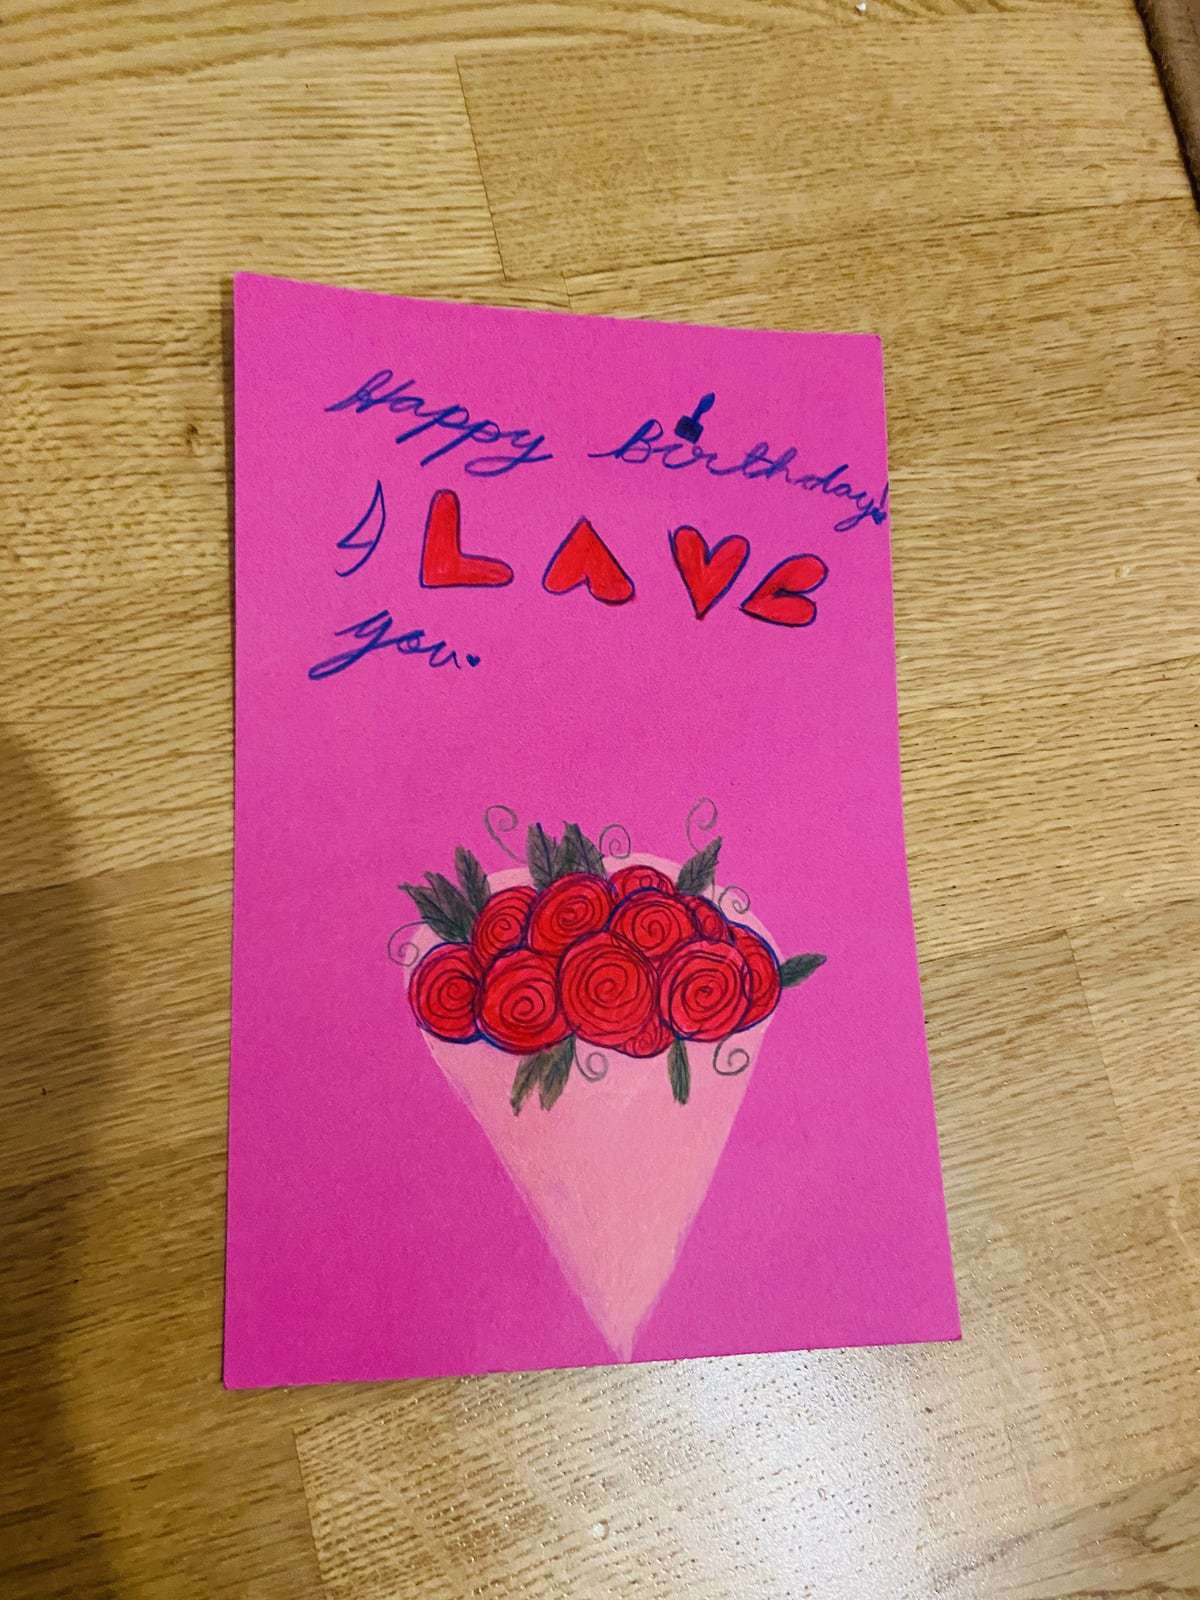 Happy Birthday!
I LAVE
you.